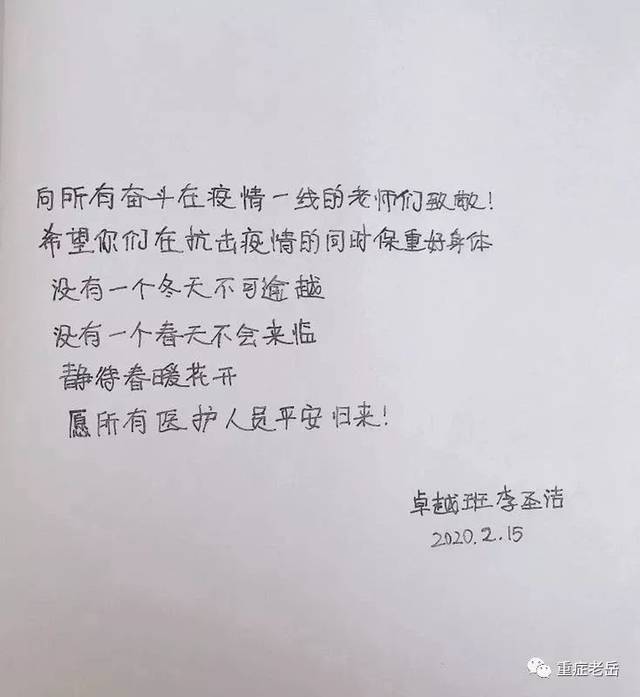 向所有奋斗在疫情一线的老师们致敬!
希望你们在抗击疫情的同时保重好身体
没有一个冬天不可逾越
没有一个春天不会来临
静待春暖花开
愿所有医护人员平安归来!
卓越班李丕洁
2020.2.15
重症老岳